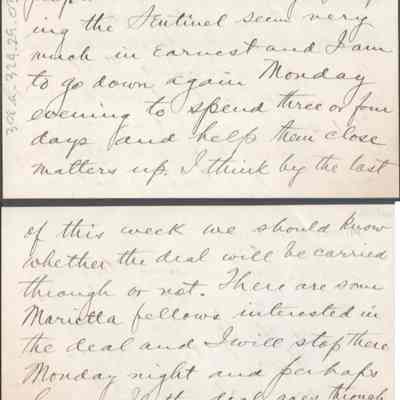 ing the Sentinel seem very
much in earnest and I am
to go down again Monday
evening to spend three or four
days and help them close
matters up. I think by the last
of this week we should know
whether the deal will be carried
through or not. There are some
Marietta fellows interested in
the deal and I will stop there
Monday night and perhaps
the deal goes through